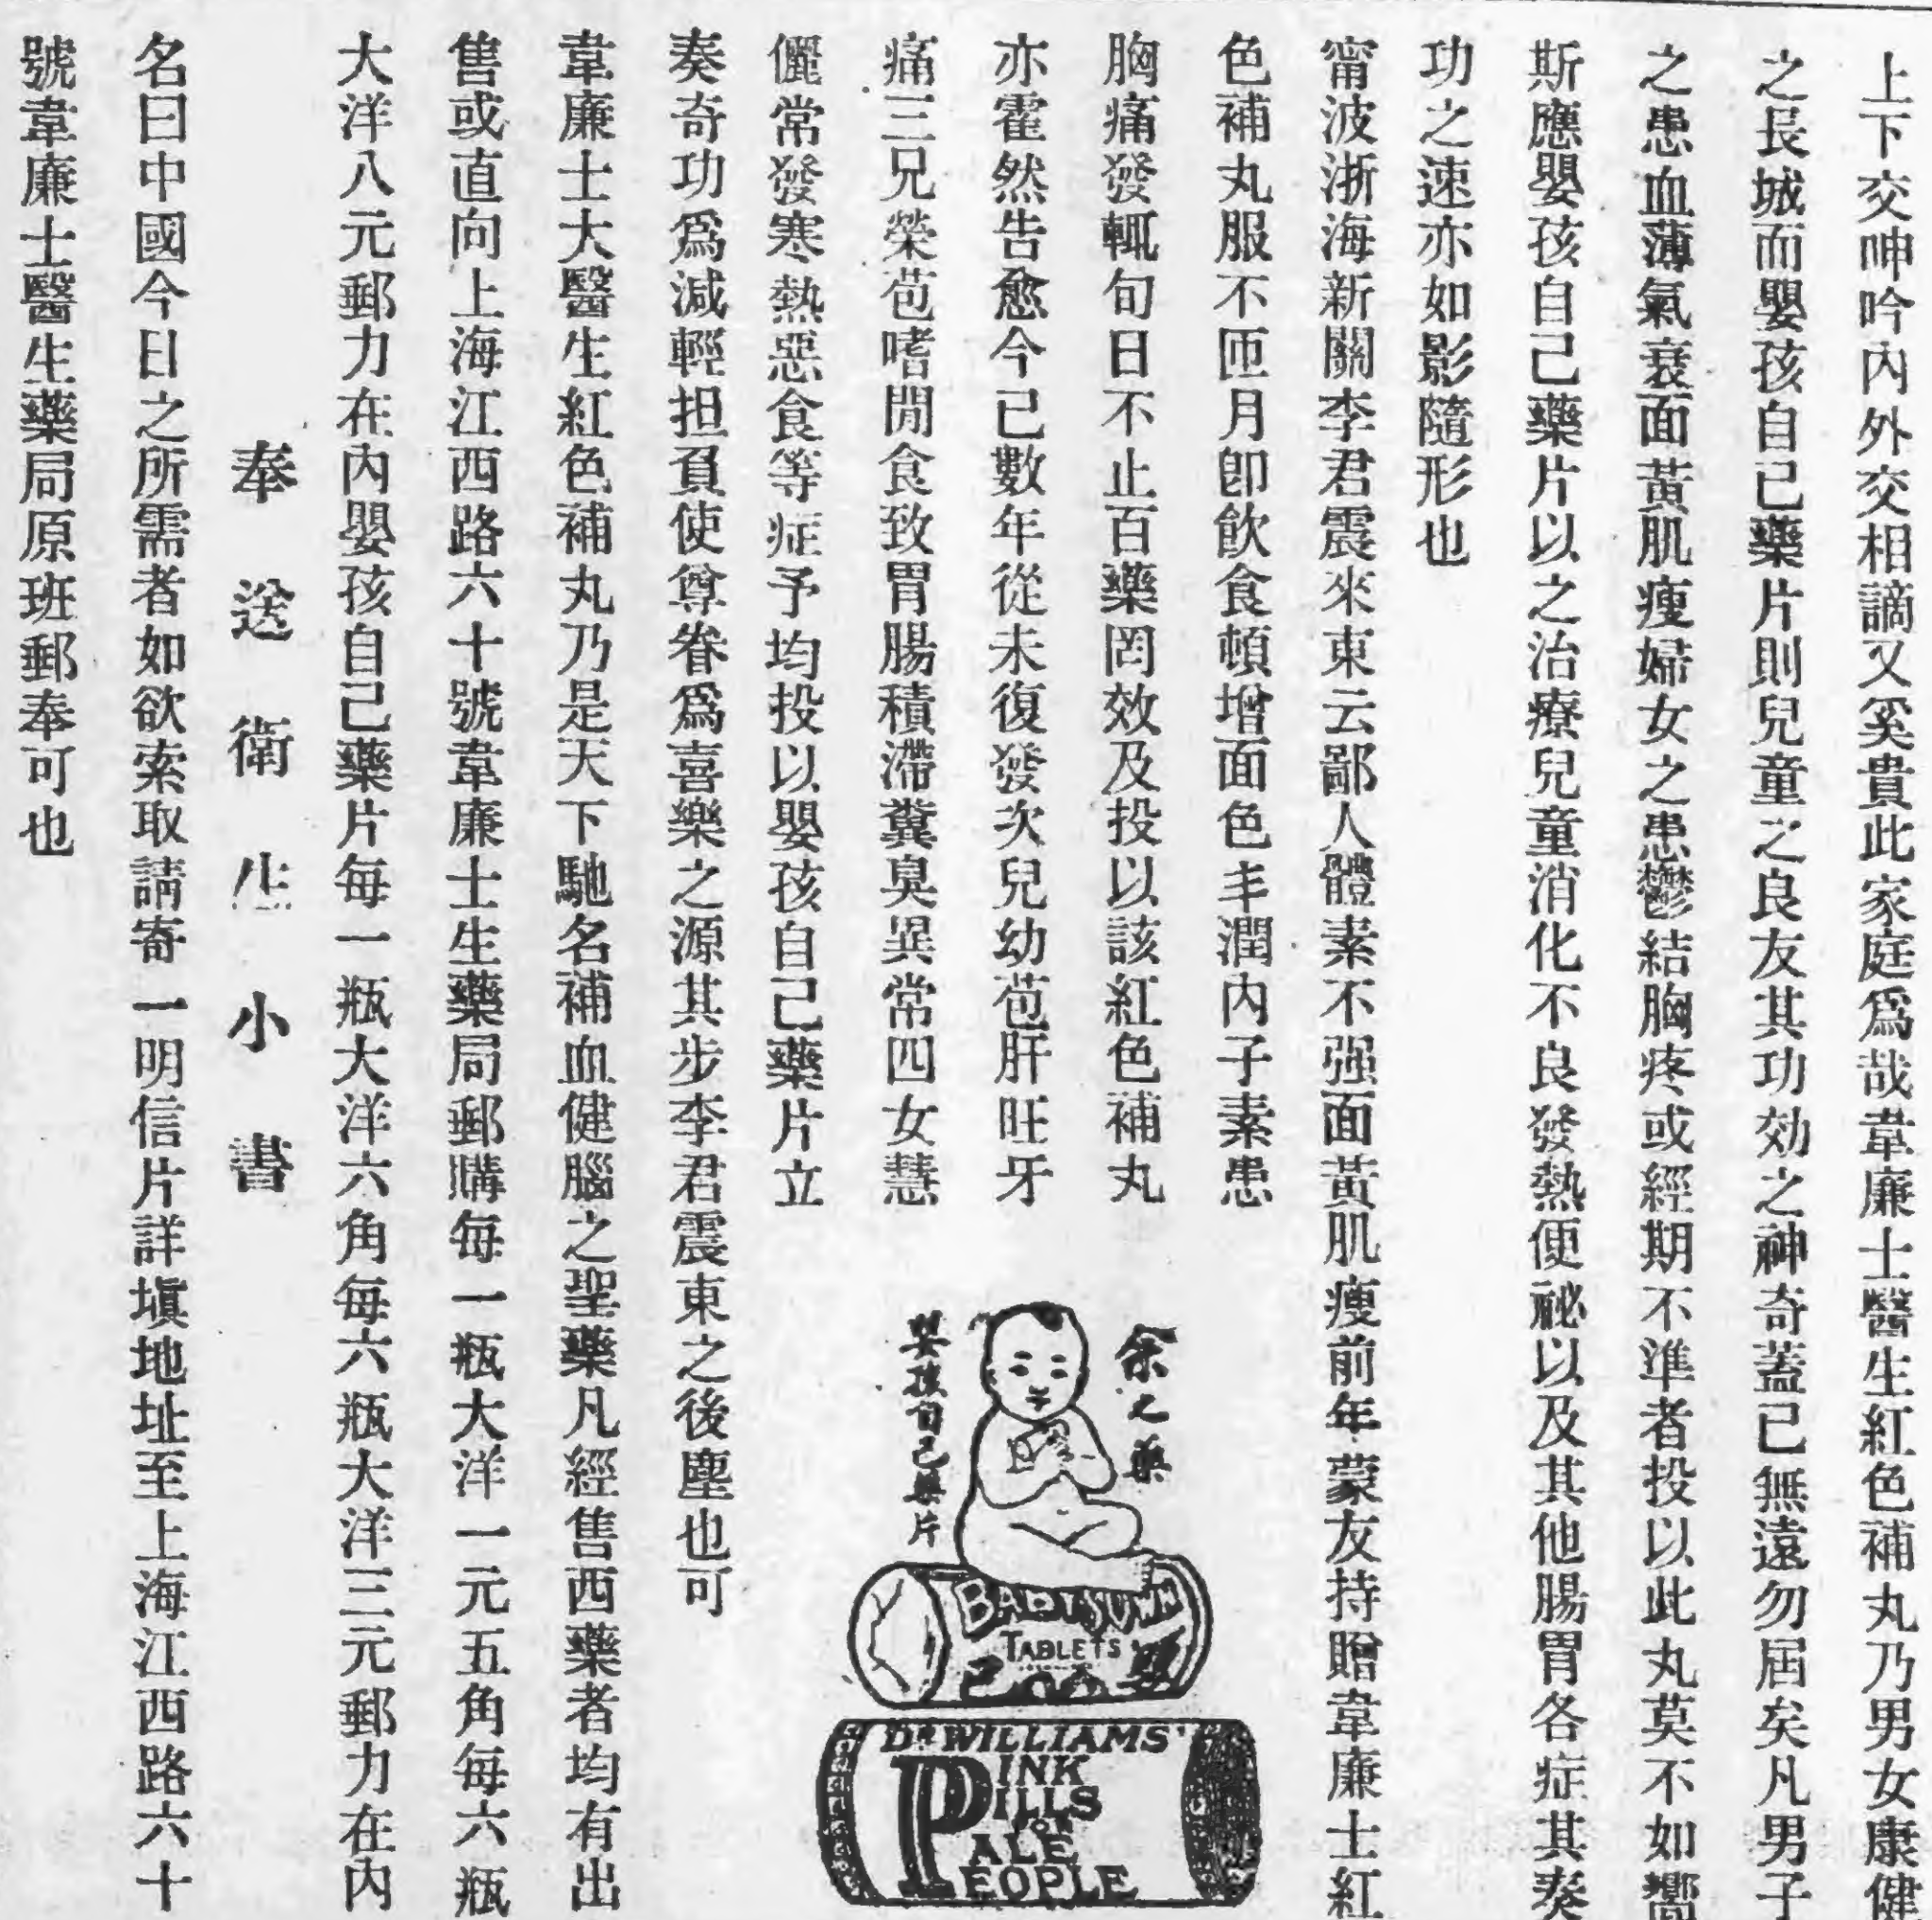 上下交呻吟內外交相謫又奚貴此家庭爲哉韋廉士醫生紅色補丸乃男女康健
之長城而嬰孩自己藥片則兒童之良友其功効之神奇蓋已無遠勿屆矣凡男子
之患血薄氣衰面黃肌瘦婦女之患鬱結胸疼或經期不準者投以此丸莫不如響
斯應嬰孩自己藥片以之治療兒童消化不良發熱便祕以及其他腸胃各症其奏
功之速亦如影隨形也
甯波浙海新關李君震來東云鄙人體素不强面黃肌瘦前年蒙友持贈韋廉士紅
色補丸服不匝月卽飲食頓增面色丰潤內子素患
胸痛發輒旬日不止百藥罔效及投以該紅色補丸
亦霍然告愈今已數年從未復發次兒幼苞肝旺牙
痛三兄榮苞嗜閒食致胃腸積滯糞臭異常四女慧
儷常發寒熱惡食等症予均投以嬰孩自己藥片立
奏奇功爲減輕担負使尊眷爲喜樂之源其步李君震東之後塵也可
韋廉士大醫生紅色補丸乃是天下馳名補血健腦之聖藥凡經售西藥者均有出
售或直向上海江西路六十號韋廉士生藥局郵購每一瓶大洋一元五角每六瓶
大洋八元郵力在內嬰孩自己藥片每一瓶大洋六角每六瓶大洋三元郵力在內
奉送衛生小書
名曰中國今日之所需者如欲索取請寄一明信片詳塡地址至上海江西路六十
號韋廉士醫生藥局原班郵奉可也
余之藥
嬰孩自己藥片
BABY'S OWN
TABLETS
DR WILLIAMS'
PINK
PILLS
FOR
PALE
PEOPLE